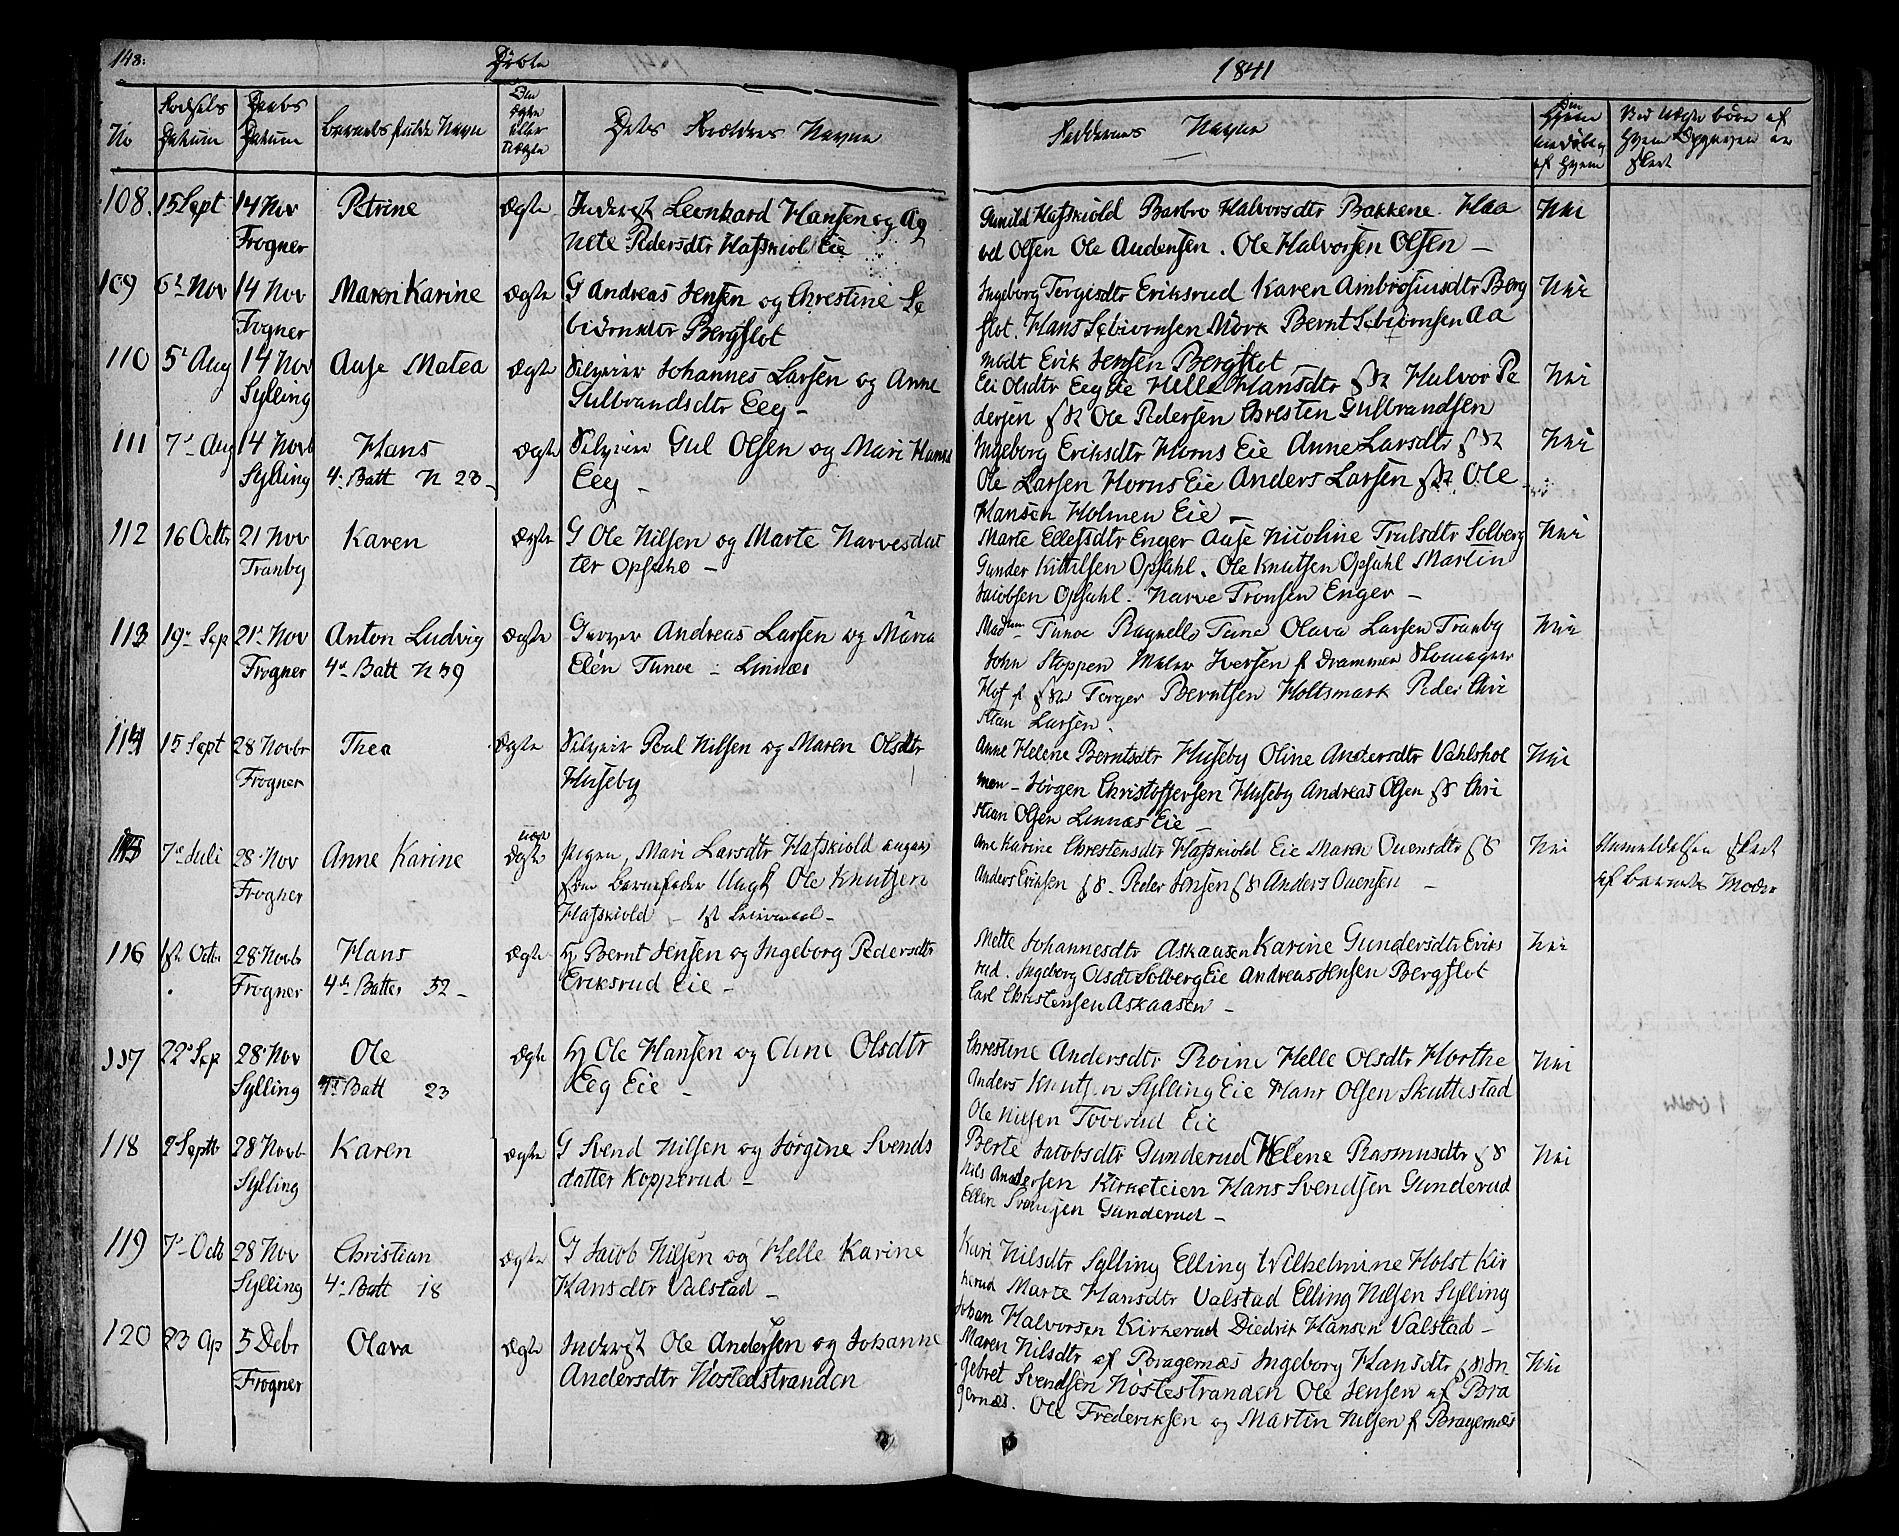 148.
Døbte
1841
No
Fødsels Datum
Daabs Datum
Barnets fulde Navn
Om Ægte eller Uægte
Dets Forældres Navne
Faddernes Navne
Om hjemmedøbt og af Hvem
Ved Uægte børn af Hvem Opgaven er skeet
108. 15 Sept 14 Nov Petrine Ægte Inderst Leonhard Hansen og Ag
Frogner nete Pedersdtr Hafskiold Eie
Gunild Hafskiold Barbro Halvorsdtr Bakkene. Haa Nei
vel Olsen Ole Audensen. Ole Halvorsen Olsen —
109 6t Nov 14 Nov Maren Karine Ægte G Andreas Jensen og Chrestine Se
Frogner biørnsdtr Bergflot
Ingeborg Torgisdtr Eriksrud Karen Ambrosiusdtr Berg Nei
flot. Hans Sebiørnsen Mørk Bernt Sebiørnsen Aa
modt Erik Jensen Bergflot
110 5t Aug 14 Nov Aase Matea Ægte Selveier Johannes Larsen og Anne
Sylling Gulbrandsdtr Eeg —
Eli Olsdtr Eeg Eie Helle Hansdtr Halvor Pe Nei
dersen Ole Pedersen Chresten Gulbrandsen
111 7de Aug 14 Novb Hans Ægte Selveier Gul Olsen og Mari Hansd
Sylling 4: Batt N 23 — Eeg —
Ingeborg Eriksdtr Horns Eie Anne Larsdtr Nei
Ole Larsen Horns Eie Anders Larsen Ole
Hansen Holmen Eie —
112 16 Octbr 21 Nov Karen Ægte G Ole Nilsen og Marte Narvesdat
Tranby ter Opsahl —
Marte Ellefsdtr Enger Aase Nicoline Trulsdtr Solberg Nei
Gunder Kittilsen Opsahl. Ole Knutsen Opsahl Martin
Jacobsen Opsahl. Narve Tronsen Enger —
113 19 Sep 21 Nov Anton Ludvig Ægte Garver Andreas Larsen og Maria
Frogner 4de Batt N 39 Elen Tunoe — Linnæs
Madm Tunoe Ragnello Tune Olava Larsen Tranby Nei
John Stoppen Maler Iversen f Drammen Skomager
Hof Torger Berntsen Holtsmark Peder Chri
stian Larsen.
114 15 Sept 28 Novbr Thea Ægte Selveier Poul Nilsen og Maren Olsdtr
Frogner Huseby
Anne Helene Berntsdtr Huseby Oline Andersdtr Vahlshol Nei
men — Jørgen Christoffersen Huseby Andreas Olsen Chri
stian Olsen Linnæs Eie —
115 7de Juli 28 Nov Anne Karine uægte Pigen, Mari Larsdtr Hafskiold angav
Frogner som Barnefader Ungk Ole Knutsen
Hafskiold —
Ane Karine Chrestensdtr Hafskiold Eie Maren Ouensdtr Nei Anmeldelsen skeet
Anders Eriksen Peder Jensen Anders Ouensen — af barnets Moder
116 1st Octbr 28 Novbr Hans Ægte Hj Bernt Jensen og Ingeborg Pedersdtr
Frogner 4de Batter 32 — Eriksrud Eie —
Mette Johannesdtr Askaasen Karine Gundersdtr Eriks Nei
rud. Ingeborg Olsdtr Solberg Eie Andreas Jensen Bergflot
Carl Christensen Askaasen —
117 22 Sep 28 Nov Ole Ægte Hj Ole Hansen og Eline Olsdtr
Sylling 4de Batt 23 Eeg Eie —
Chrestine Andersdtr Roine Helle Olsdtr Horthe Nei
Anders Knutsen Sylling Eie Hans Olsen Skuttestad
Ole Nilsen Toverud Eie
118 2 Septb 28 Novb Karen Ægte G Svend Nilsen og Jørgine Svends
Sylling datter Kopperud —
Berte Jacobsdtr Gunderud Helene Rasmusdtr Nei
Nils Andersen Kirketeien Hans Svendsen Gunderud
Ellen Svendsen Gunderud —
119 7de Octb 28 Nov Christian Ægte G Jacob Nilsen og Helle Karine
Sylling 4de Batt 18 Hansdtr Valstad —
Kari Nilsdtr Sylling Elling Wilhelmine Holst Kir
kerud Marte Hansdtr Valstad Elling Nilsen Sylling
Johan Halvorsen Kirkerud Diedrik Hansen Valstad —
120 23 Ap 5 Debr Olava Ægte Inderst Ole Andersen og Johanne
Frogner Andersdtr Nøstedstranden
Maren Nilsdtr af Bragernæs Ingeborg Hansdtr In Nei
gebret Svendsen Nøstestranden Ole Jensen af Bra
gernæs. Ole Frederiksen og Martin Nilsen f Bragernæs